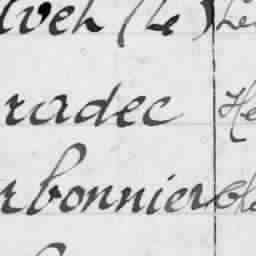 lven (Le) Le
radec He
rbonnier Cha